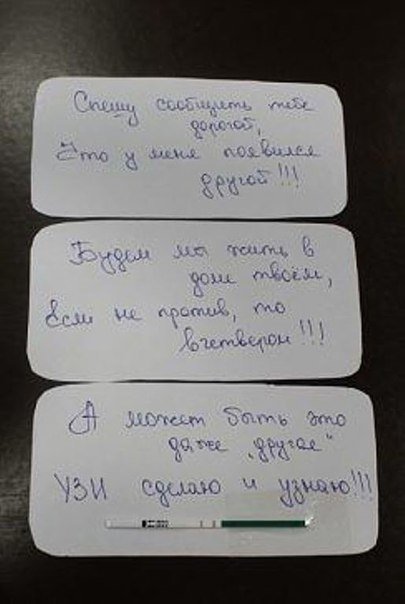 Спешу сообщить тебе
дорогой,
Что у меня появился
другой!!!
Будем мы жить в
доме твоём,
Если не против, то
вчетвером!!!
А может быть это
даже „другая"
УЗИ сделаю и узнаю!!!